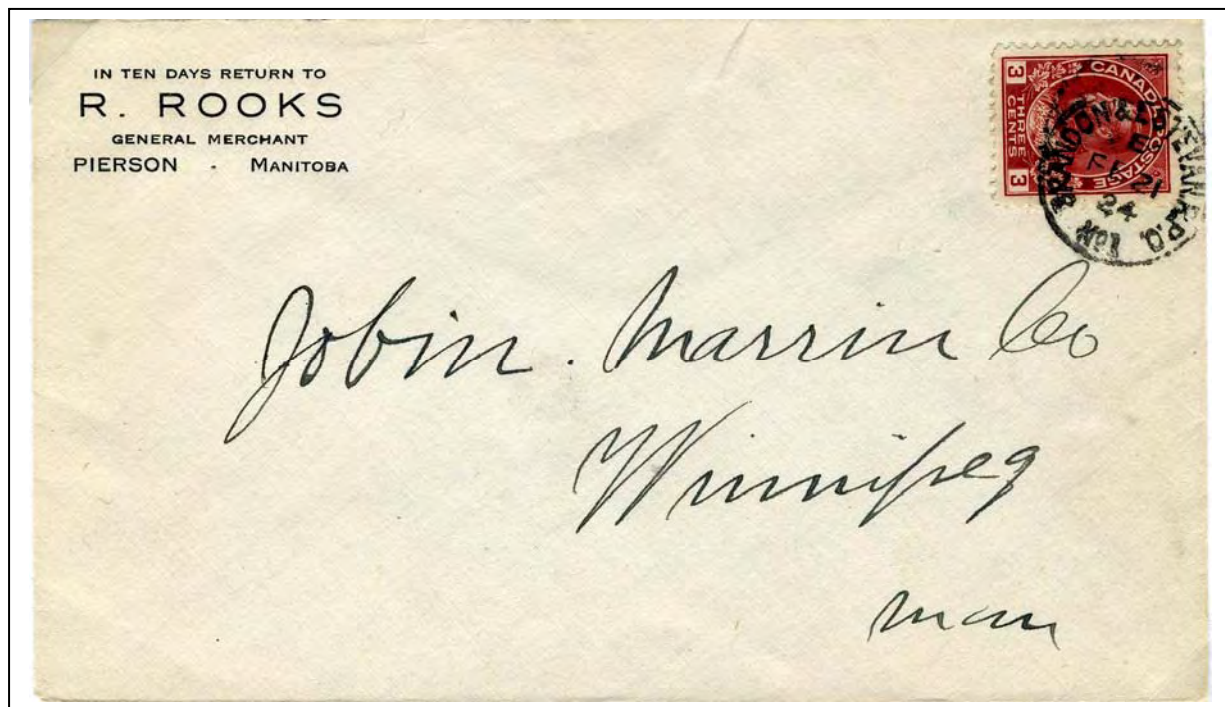 IN TEN DAYS RETURN TO
R. ROOKS
GENERAL MERCHANT
PIERSON - MANITOBA
CANADA POSTAGE
3 THREE CENTS 3
BRANDON & ESTEVAN R.P.O.
E
FE 21
24
No1
Jobin. Marrin Co
Winnipeg
man